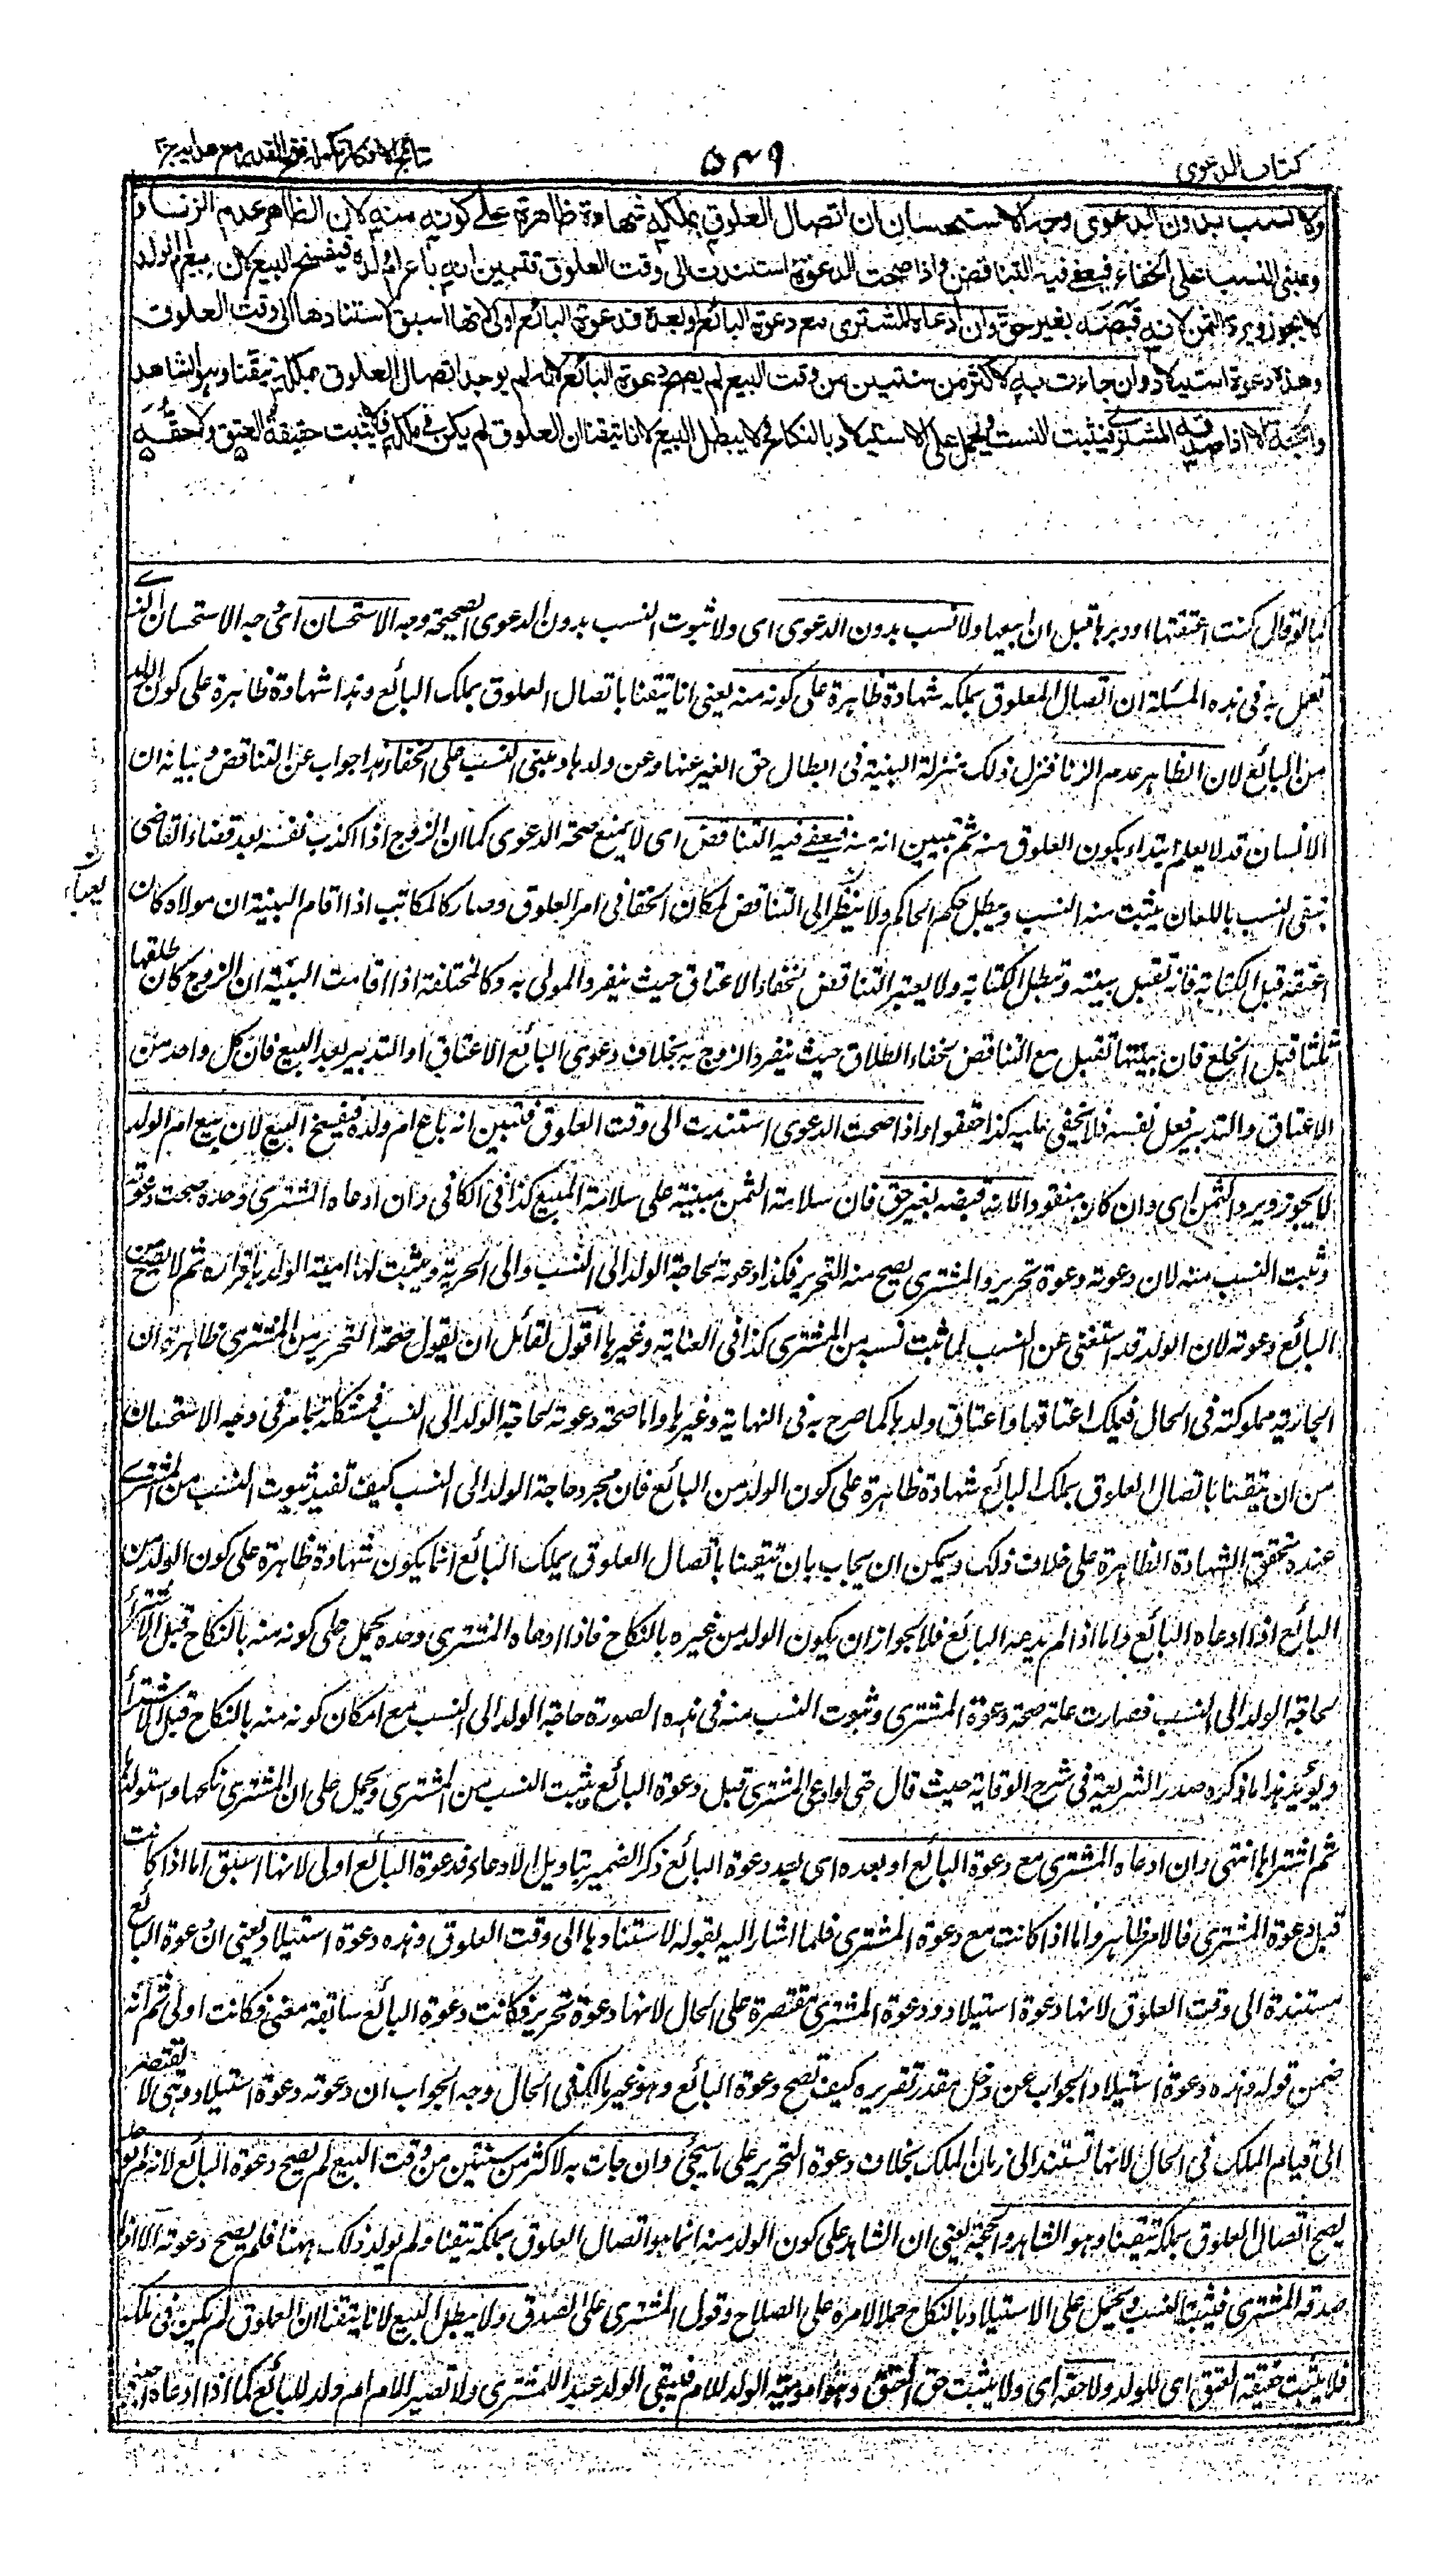 كتاب الدعوى
٥٤٩
نتائج الافكار تكملة فتح القدير مع هدايه ج٢
ولا نسب بدون الدعوى وجه الاستحسان ان اتصال العلوق بملكه شهادة ظاهرة على كونه منه لان الظاهر عدم الزنا و
ومبنى النسب على الخفاء فيعفى فيه التناقض واذا صحت الدعوة استندت الى وقت العلوق فتبين انه باع ام ولده فيفسخ البيع لان بيع ام الولد
لا يجوز ويرد الثمن لانه قبضه بغير حق وان ادعاه المشترى مع دعوة البائع او بعده فدعوة البائع اولى لانها اسبق لاستنادها الى وقت العلوق
وهذه دعوة استيلاد وان جاءت به لاكثر من سنتين من وقت البيع لم يصح دعوة البائع لانه لم يوجد اتصال العلوق بملكه تيقنا وهو الشاهد
والحجة الا اذا صدقه المشترى فيثبت النسب ويحمل على الاستيلاد بالنكاح ولا يبطل البيع لانا تيقنا ان العلوق لم يكن فى ملكه فلا يثبت حقيقة العتق ولا حقه
كما لو قال كنت اعتقتها او دبرتها قبل ان ابيعها ولا نسب بدون الدعوى اى ولا ثبوت النسب بدون الدعوى الصحيحة وجه الاستحسان اى وجه الاستحسان الذى
تعمل به فى هذه المسئلة ان اتصال العلوق بملكه شهادة ظاهرة على كونه منه يعنى انا تيقنا باتصال العلوق بملك البائع وهذا شهادة ظاهرة على كون الولد
من البائع لان الظاهر عدم الزنا فنزل ذلك منزلة البينة فى ابطال حق الغير عنها وعن ولدها ومبنى النسب على الخفاء هذا جواب عن التناقض وبيانه ان
الانسان قد لا يعلم ابتداء بكون العلوق منه ثم تبين انه منه فيعفى فيه التناقض اى لا يمنع صحة الدعوى كما ان الزوج اذا اكذب نفسه بعد قضاء القاضى
بنفى النسب باللعان يثبت منه النسب ويبطل حكم الحاكم ولا ينظر الى التناقض لمكان الخفا فى امر العلوق وصار كالمكاتب اذا اقام البينة ان مولاه كان
اعتقه قبل الكتابة فانه تقبل بينته وتبطل الكتابة ولا يعتبر التناقض لخفاء الاعتاق حيث ينفرد المولى به وكالمختلعة اذا اقامت البينة ان الزوج كان طلقها
ثلثا قبل الخلع فان بينتها تقبل مع التناقض لخفاء الطلاق حيث ينفرد الزوج به بخلاف دعوى البائع الاعتاق او التدبير بعد البيع فان كل واحد من
الاعتاق والتدبير فعل نفسه فلا يخفى عليه كذا حققوا واذا صحت الدعوى استندت الى وقت العلوق فتبين انه باع ام ولده فيفسخ البيع لان بيع ام الولد
لا يجوز ويرد الثمن اى وان كان منقودا لانه قبضه بغير حق فان سلامة الثمن مبنية على سلامة المبيع كذا فى الكافى وان ادعاه المشترى وحده صحت دعوته
وثبت النسب منه لان دعوته دعوة تحرير والمشترى يصح منه التحرير فكذا دعوته لحاجة الولد الى النسب والى الحرية ويثبت لها امية الولد باقراره ثم لا يصح من
البائع دعوته لان الولد قد استغنى عن النسب لما ثبت نسبه من المشترى كذا فى العناية وغيرها اقول لقائل ان يقول صحة التحرير من المشترى ظاهرة ان
الجارية مملوكته فى الحال فيملك اعتاقها واعتاق ولدها كما صرح به فى النهاية وغيرها واما صحة دعوته لحاجة الولد الى النسب فمشكلة بما مر فى وجه الاستحسان
من ان تيقنا باتصال العلوق بملك البائع شهادة ظاهرة على كون الولد من البائع فان مجرد حاجة الولد الى النسب كيف تفيد ثبوت النسب من المشترى
عند تحقق الشهادة الظاهرة على خلاف ذلك ويمكن ان يجاب بان تيقنا باتصال العلوق بملك البائع انما يكون شهادة ظاهرة على كون الولد من
البائع اذا ادعاه البائع واما اذا لم يدعه البائع فلا لجواز ان يكون الولد من غيره بالنكاح فاذا ادعاه المشترى وحده يحمل على كونه منه بالنكاح قبل الاشتراء
لحاجة الولد الى النسب فصارت علة صحة دعوة المشترى وثبوت النسب منه فى هذه الصورة حاجة الولد الى النسب مع امكان كونه منه بالنكاح قبل الاشتراء
ويؤيد هذا ما ذكره صدر الشريعة فى شرح الوقاية حيث قال حتى لو ادعى المشترى قبل دعوة البائع يثبت النسب من المشترى ويحمل على ان المشترى نكحها واستولدها
ثم اشتراها انتهى وان ادعاه المشترى مع دعوة البائع او بعده اى بعد دعوة البائع ذكر الضمير بتاويل الادعاء فدعوة البائع اولى لانها اسبق اما اذا كانت
قبل دعوة المشترى فالامر ظاهر واما اذا كانت مع دعوة المشترى فلما اشار اليه بقوله لاستنادها الى وقت العلوق وهذه دعوة استيلاد يعنى ان دعوة البائع
مستندة الى وقت العلوق لانها دعوة استيلاد ودعوة المشترى مقتصرة على الحال لانها دعوة تحرير فكانت دعوة البائع سابقة معنى فكانت اولى ثم انه
ضمن قوله وهذه دعوة استيلاد الجواب عن دخل مقدر تقريره كيف تصح دعوة البائع وهو غير مالك فى الحال وجه الجواب ان دعوته دعوة استيلاد وهى لا تفتقر
الى قيام الملك فى الحال لانها تستند الى زمان الملك بخلاف دعوة التحرير على ما سيجئ وان جاءت به لاكثر من سنتين من وقت البيع لم يصح دعوة البائع لانه لم يوجد
يصح اتصال العلوق بملكه تيقنا وهو الشاهد والحجة يعنى ان الشاهد على كون الولد منه انما هو اتصال العلوق بملكه تيقنا ولم يوجد ذلك ههنا فلم يصح دعوته الا اذا
صدقه المشترى فيثبت النسب ويحمل على الاستيلاد بالنكاح حملا لامره على الصلاح وقول المشترى على الصدق ولا يبطل البيع لانا تيقنا ان العلوق لم يكن فى ملكه
فلا يثبت حقيقة العتق اى للولد ولا حقه اى ولا يثبت حق العتق وهو امومية الولد للام فيبقى الولد عبدا للمشترى ولا تصير الام ام ولد للبائع كما اذا ادعاه